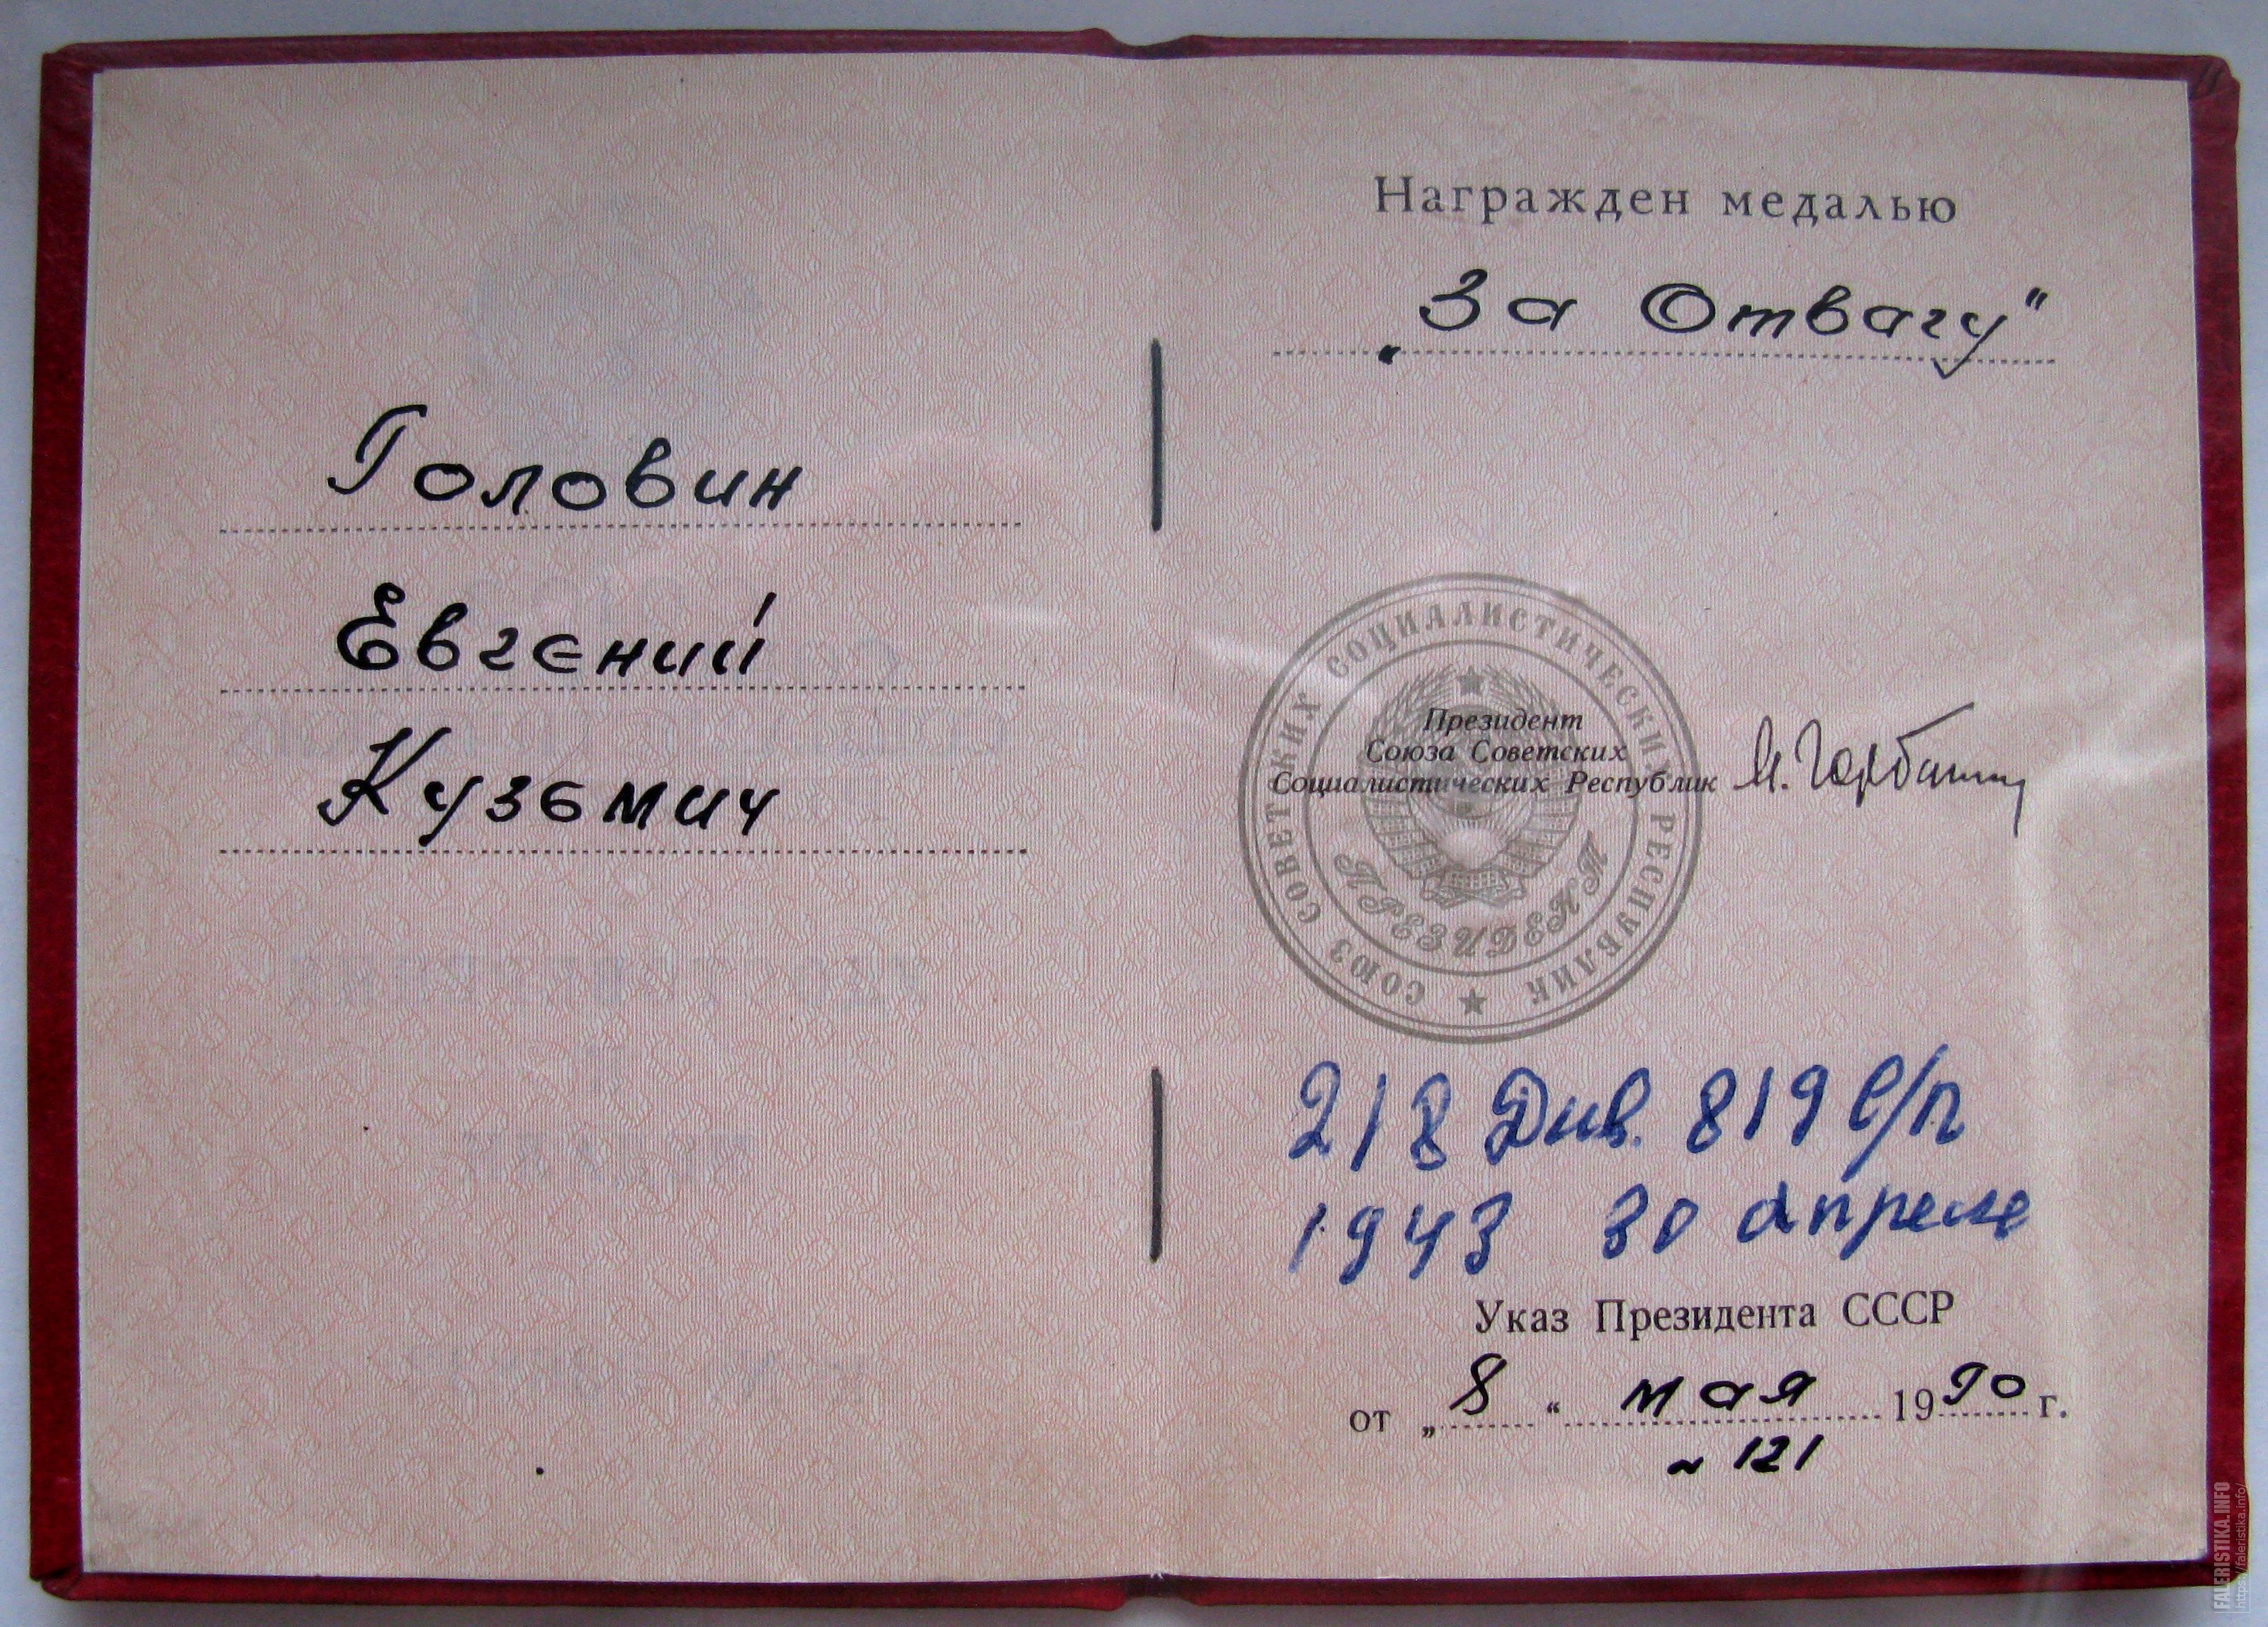 Головин
Евгений
Кузьмич
Награжден медалью
„За Отвагу"
СОЮЗ СОВЕТСКИХ СОЦИАЛИСТИЧЕСКИХ РЕСПУБЛИК
ПРЕЗИДЕНТ
Президент
Союза Советских
Социалистических Республик
218 Див. 819 с/п
1943 30 апреле
Указ Президента СССР
от „8“ мая 1990 г.
~ 121
FALERISTIKA.INFO
https://faleristika.info/